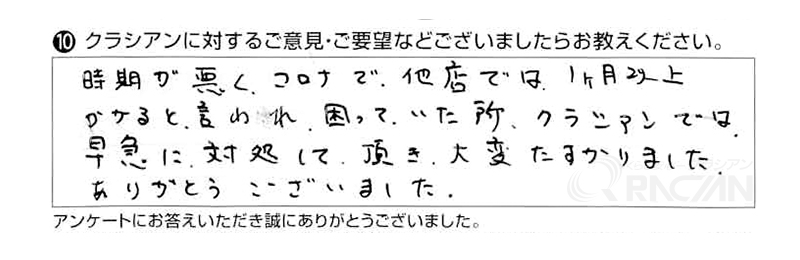 ❿ クラシアンに対するご意見・ご要望などございましたらお教えください。
時期が悪く、コロナで、他店では、1ヶ月以上
かかると、言われ、困って、いた所、クラシアンでは、
早急に、対処して、頂き、大変たすかりました。
ありがとうございました。
アンケートにお答えいただき誠にありがとうございました。
クラシアン
QRACIAN